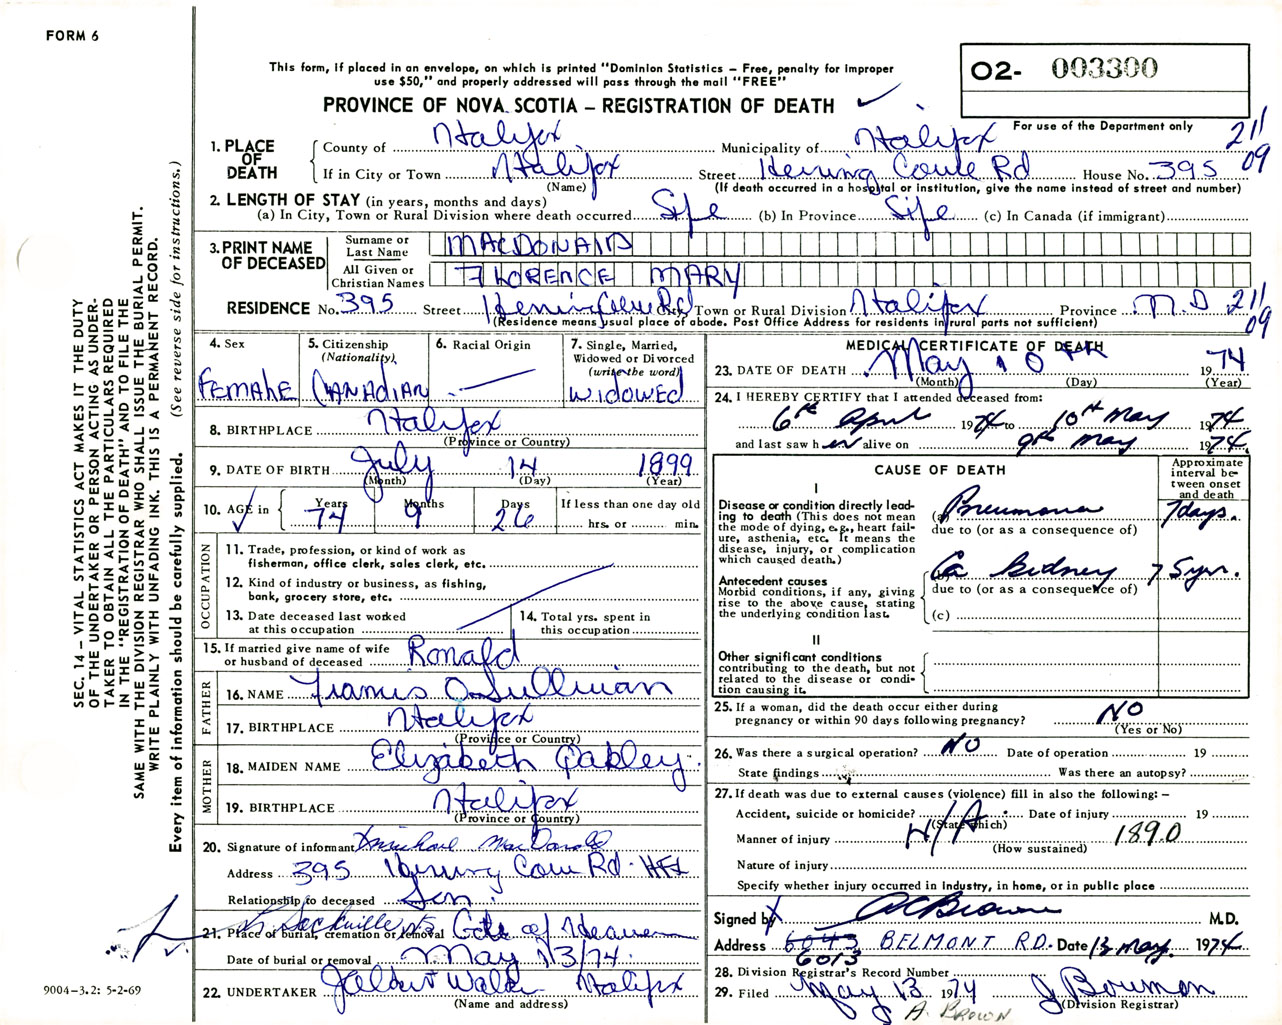 FORM 6
This form, if placed in an envelope, on which is printed "Dominion Statistics – Free, penalty for improper
use $50," and properly addressed will pass through the mail "FREE"
O2- 003300
PROVINCE OF NOVA SCOTIA – REGISTRATION OF DEATH
For use of the Department only
211
09
1. PLACE OF DEATH
County of Halifax Municipality of Halifax
If in City or Town Halifax Street Herring Cove Rd House No. 395
(Name) (If death occurred in a hospital or institution, give the name instead of street and number)
2. LENGTH OF STAY (in years, months and days)
(a) In City, Town or Rural Division where death occurred Life (b) In Province Life (c) In Canada (if immigrant)
3. PRINT NAME OF DECEASED
Surname or Last Name MACDONALD
All Given or Christian Names FLORENCE MARY
RESIDENCE No. 395 Street Herring Cove Rd City, Town or Rural Division Halifax Province N.S 211
09
(Residence means usual place of abode. Post Office Address for residents in rural parts not sufficient)
4. Sex FEMALE
5. Citizenship (Nationality) CANADIAN
6. Racial Origin
7. Single, Married, Widowed or Divorced (write the word) WIDOWED
8. BIRTHPLACE Halifax
(Province or Country)
9. DATE OF BIRTH July 14 1899
(Month) (Day) (Year)
10. AGE in Years 74 Months 9 Days 26 If less than one day old
hrs. or min.
OCCUPATION
11. Trade, profession, or kind of work as
fisherman, office clerk, sales clerk, etc.
12. Kind of industry or business, as fishing,
bank, grocery store, etc.
13. Date deceased last worked
at this occupation
14. Total yrs. spent in
this occupation
15. If married give name of wife
or husband of deceased Ronald
FATHER
16. NAME Francis O Sullivan
17. BIRTHPLACE Halifax
(Province or Country)
MOTHER
18. MAIDEN NAME Elizabeth Oakley
19. BIRTHPLACE Halifax
(Province or Country)
20. Signature of informant MacDonald
Address 395 Herring Cove Rd. Hfx
Relationship to deceased Son
L. Sackville NS
21. Place of burial, cremation or removal Gate of Heaven
Date of burial or removal May 13/74
22. UNDERTAKER Walker Halifax
(Name and address)
MEDICAL CERTIFICATE OF DEATH
23. DATE OF DEATH May 10th 1974
(Month) (Day) (Year)
24. I HEREBY CERTIFY that I attended deceased from:
6th April 1974 to 10th May 1974
and last saw her alive on 9th May 1974
CAUSE OF DEATH
Approximate interval between onset and death
I
Disease or condition directly lead-
ing to death (This does not mean
the mode of dying, e.g., heart fail-
ure, asthenia, etc. It means the
disease, injury, or complication
which caused death.)
(a) Pneumonia 7 days.
due to (or as a consequence of)
Antecedent causes
Morbid conditions, if any, giving
rise to the above cause, stating
the underlying condition last.
(b) Ca Kidney 7 5 yrs.
due to (or as a consequence of)
(c)
II
Other significant conditions
contributing to the death, but not
related to the disease or condi-
tion causing it.
25. If a woman, did the death occur either during
pregnancy or within 90 days following pregnancy? NO
(Yes or No)
26. Was there a surgical operation? NO Date of operation 19
State findings Was there an autopsy?
27. If death was due to external causes (violence) fill in also the following: –
Accident, suicide or homicide? N/A Date of injury 19
(State which)
Manner of injury 1890
(How sustained)
Nature of injury
Specify whether injury occurred in Industry, in home, or in public place
Signed by X AC Brown M.D.
Address 6043 BELMONT RD. Date 13 May. 1974
6013
28. Division Registrar's Record Number
29. Filed May 13 1974 J Bowman
(Division Registrar)
A. BROWN
SEC. 14 – VITAL STATISTICS ACT MAKES IT THE DUTY
OF THE UNDERTAKER OR PERSON ACTING AS UNDER-
TAKER TO OBTAIN ALL THE PARTICULARS REQUIRED
IN THE "REGISTRATION OF DEATH" AND TO FILE THE
SAME WITH THE DIVISION REGISTRAR WHO SHALL ISSUE THE BURIAL PERMIT.
WRITE PLAINLY WITH UNFADING INK. THIS IS A PERMANENT RECORD.
Every item of information should be carefully supplied. (See reverse side for instructions.)
9004-3.2: 5-2-69